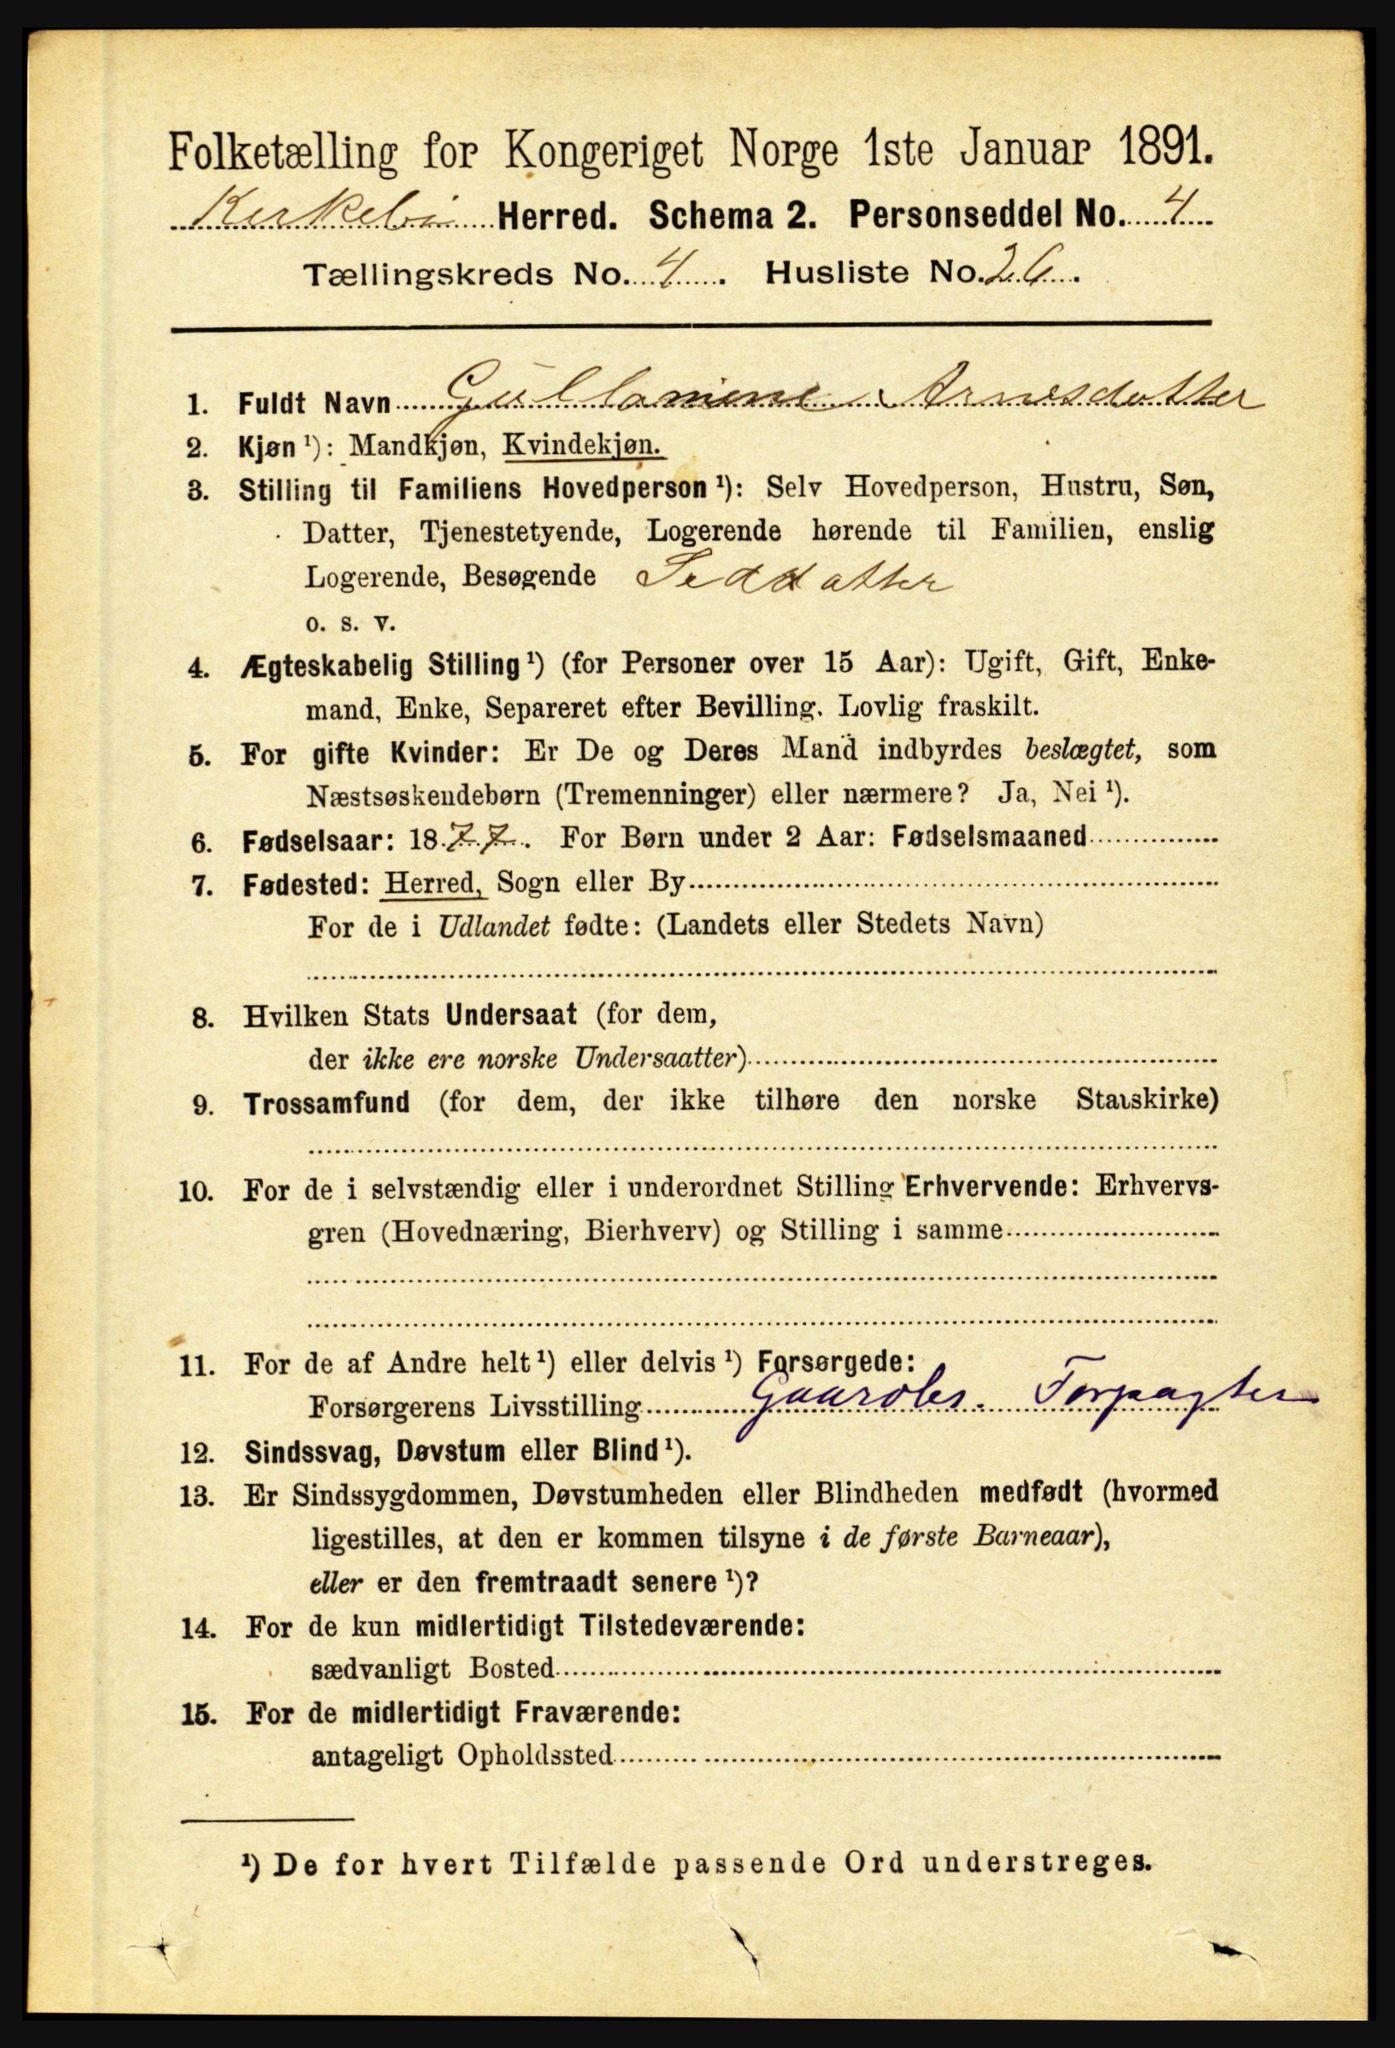 Folketælling for Kongeriget Norge 1ste Januar 1891.
Kirkebø Herred. Schema 2. Personseddel No. 4
Tællingskreds No. 4. Husliste No. 26.
1. Fuldt Navn Arnesdatter
2. Kjøn ¹): Mandkjøn, Kvindekjøn.
3. Stilling til Familiens Hovedperson ¹): Selv Hovedperson, Hustru, Søn,
Datter, Tjenestetyende, Logerende hørende til Familien, enslig
Logerende, Besøgende
o. s. v.
4. Ægteskabelig Stilling ¹) (for Personer over 15 Aar): Ugift, Gift, Enke-
mand, Enke, Separeret efter Bevilling. Lovlig fraskilt.
5. For gifte Kvinder: Er De og Deres Mand indbyrdes beslægtet, som
Næstsøskendebørn (Tremenninger) eller nærmere? Ja, Nei ¹).
6. Fødselsaar: 1877. For Børn under 2 Aar: Fødselsmaaned
7. Fødested: Herred, Sogn eller By
For de i Udlandet fødte: (Landets eller Stedets Navn)
8. Hvilken Stats Undersaat (for dem,
der ikke ere norske Undersaatter)
9. Trossamfund (for dem, der ikke tilhøre den norske Statskirke)
10. For de i selvstændig eller i underordnet Stilling Erhvervende: Erhvervs-
gren (Hovednæring, Bierhverv) og Stilling i samme
11. For de af Andre helt ¹) eller delvis ¹) Forsørgede:
Forsørgerens Livsstilling Gaardbr. Forpagter
12. Sindssvag, Døvstum eller Blind ¹).
13. Er Sindssygdommen, Døvstumheden eller Blindheden medfødt (hvormed
ligestilles, at den er kommen tilsyne i de første Barneaar),
eller er den fremtraadt senere ¹)?
14. For de kun midlertidigt Tilstedeværende:
sædvanligt Bosted
15. For de midlertidigt Fraværende:
antageligt Opholdssted
¹) De for hvert Tilfælde passende Ord understreges.